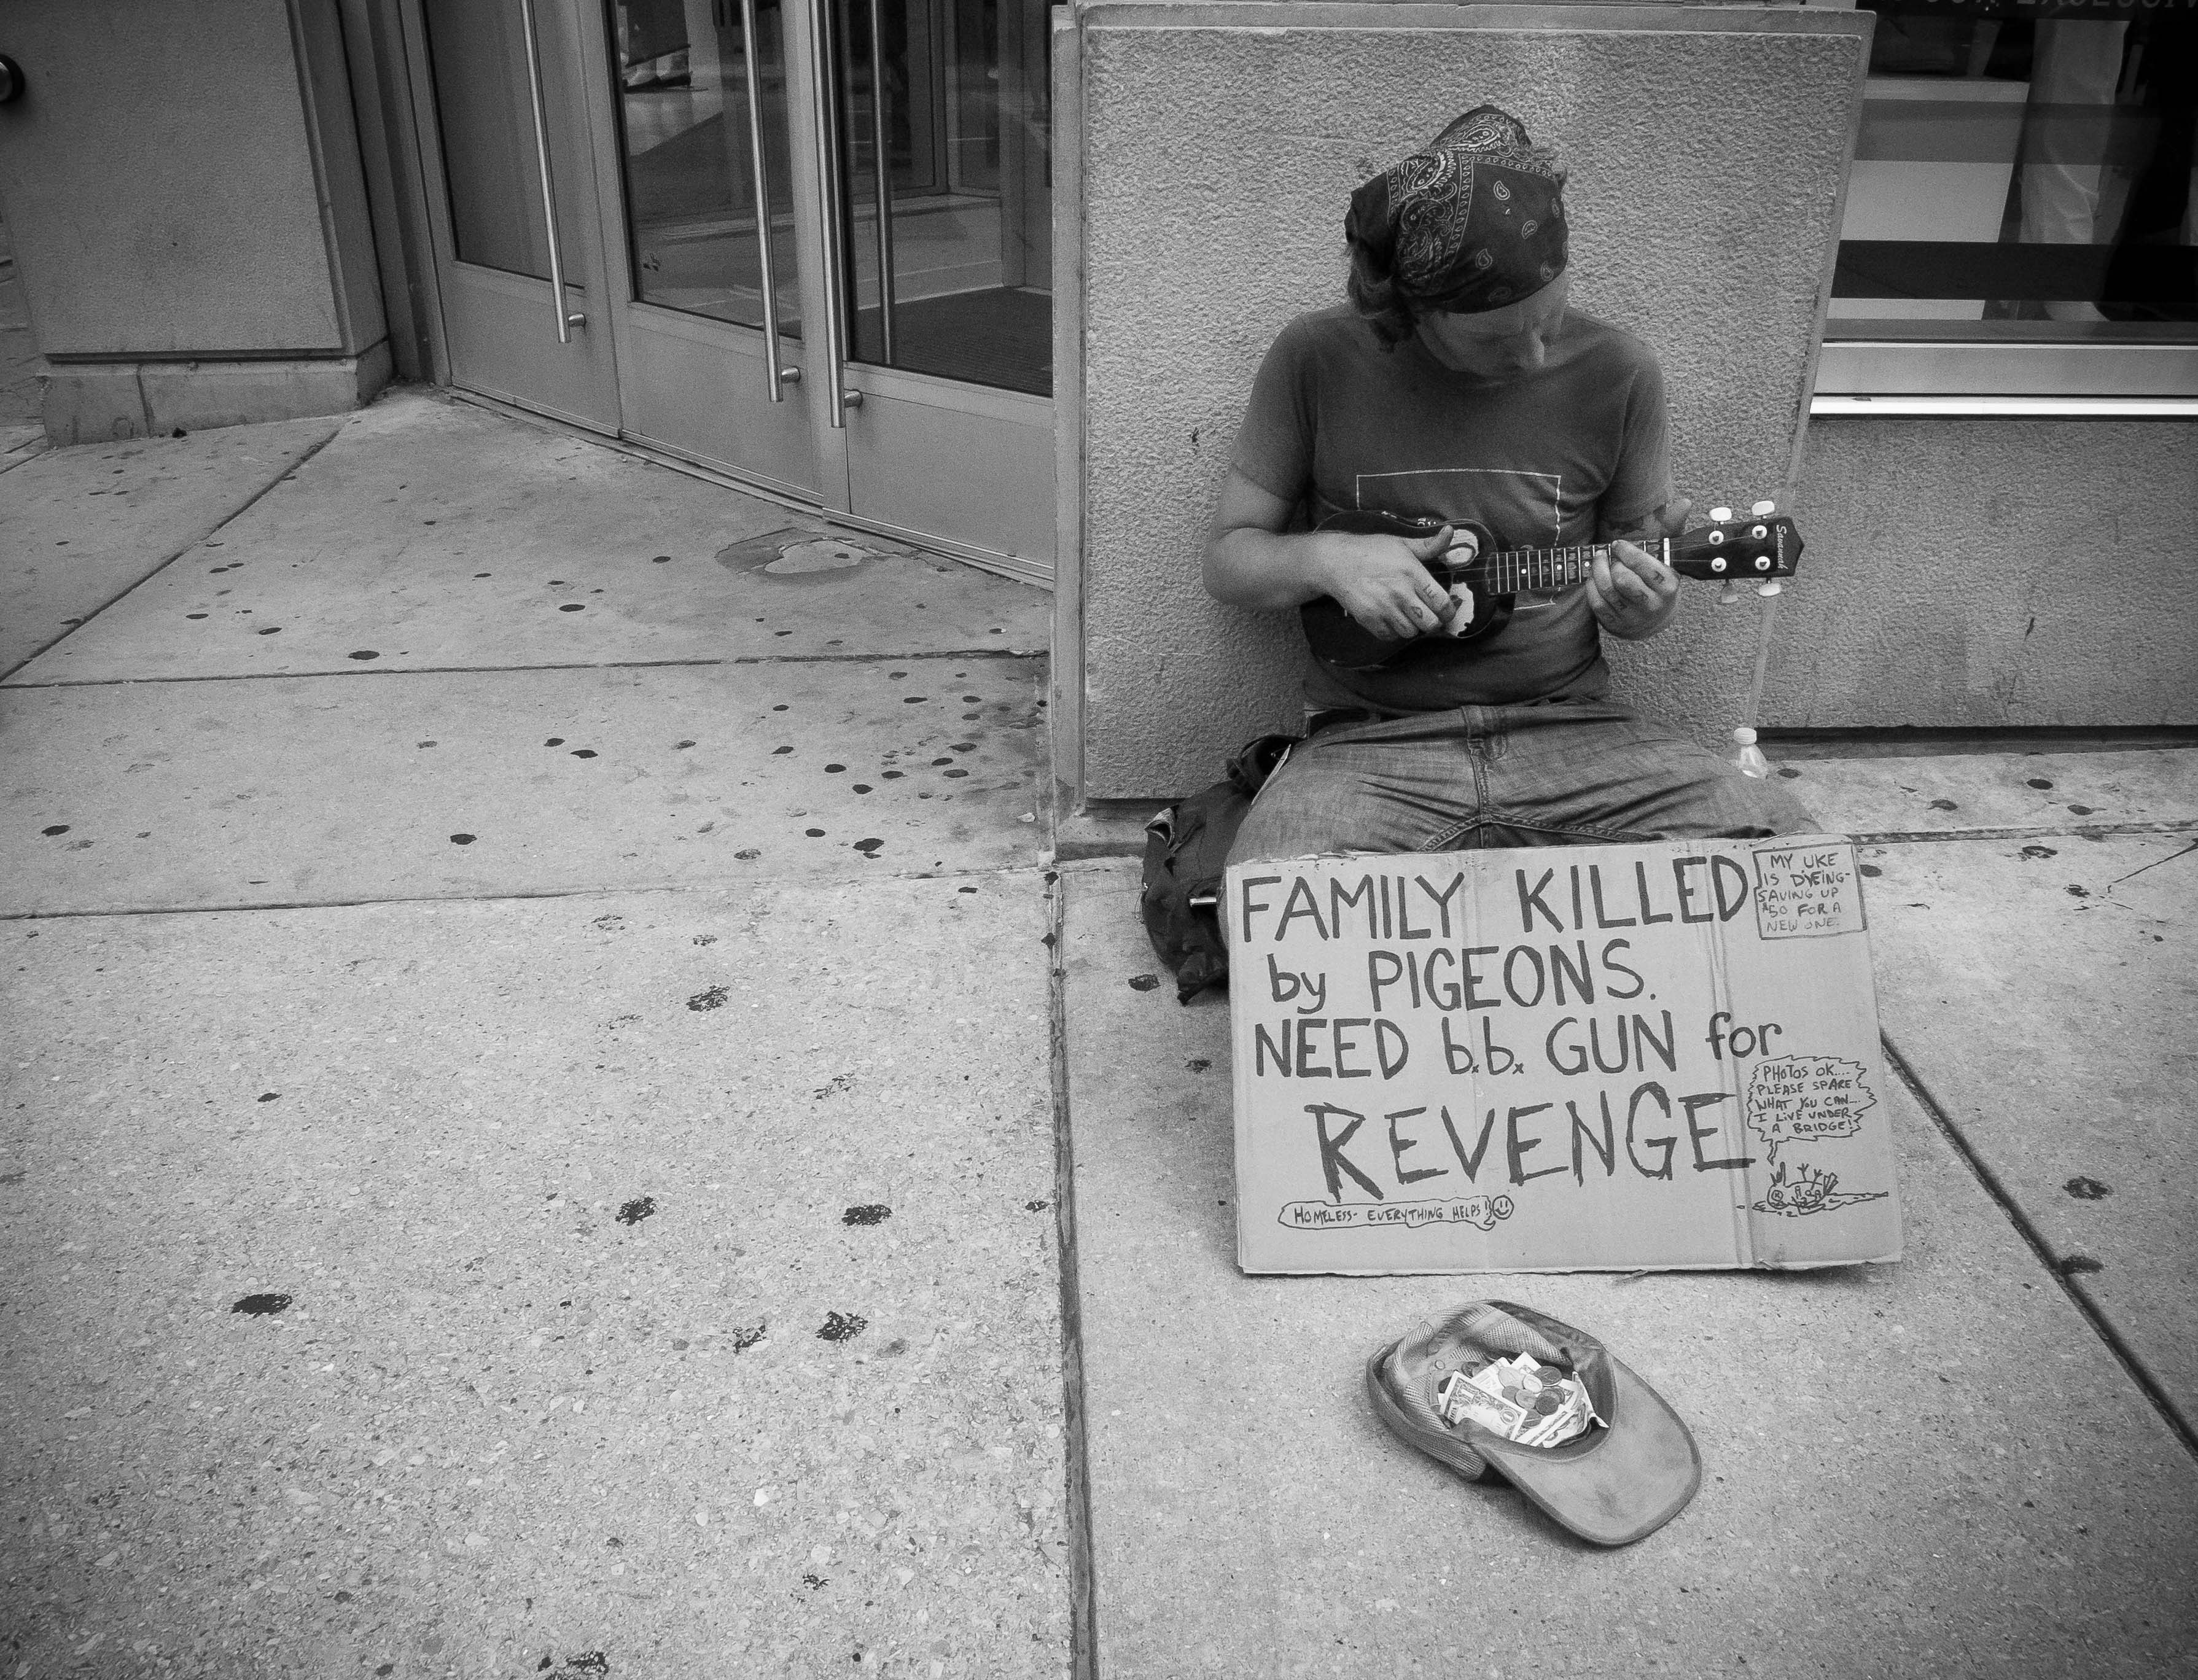 Savannah
FAMILY KILLED
by PIGEONS.
NEED b.b. GUN for
REVENGE
MY UKE
IS DYEING-
SAVING UP
$50 FOR A
NEW ONE.
PHOTOS OK....
PLEASE SPARE
WHAT YOU CAN...
I LIVE UNDER
A BRIDGE!
HOMELESS- EVERYTHING HELPS!